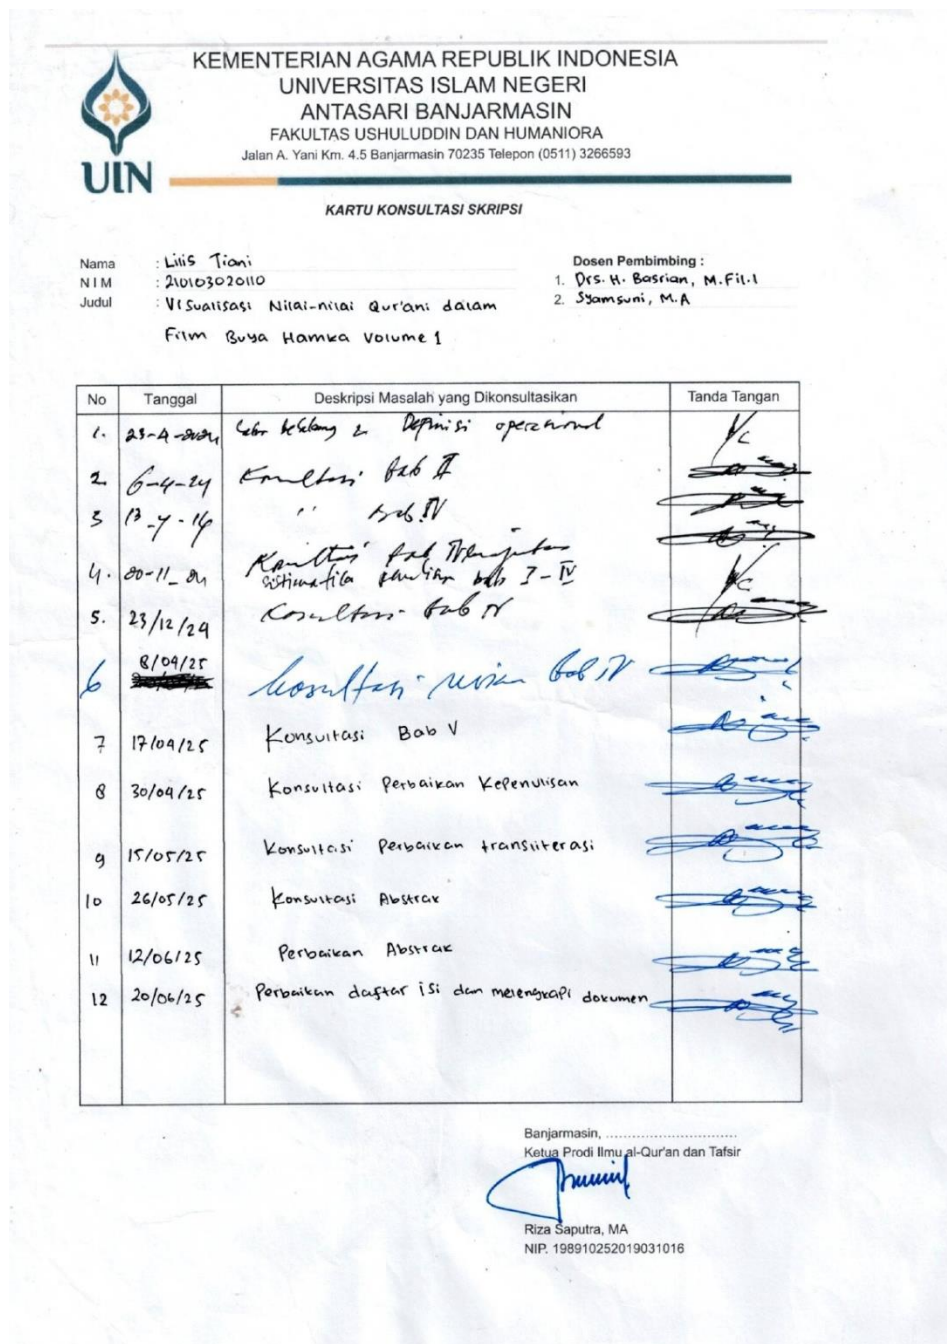 KEMENTERIAN AGAMA REPUBLIK INDONESIA
UNIVERSITAS ISLAM NEGERI
ANTASARI BANJARMASIN
FAKULTAS USHULUDDIN DAN HUMANIORA
Jalan A. Yani Km. 4.5 Banjarmasin 70235 Telepon (0511) 3266593
UIN
KARTU KONSULTASI SKRIPSI
Nama : Lilis Tiani
NIM : 210103020110
Judul : Visualisasi Nilai-nilai Qur'ani dalam
Film Buya Hamka Volume 1
Dosen Pembimbing :
1. Drs. H. Basrian, M.Fil.I
2. Syamsuni, M.A
No Tanggal Deskripsi Masalah yang Dikonsultasikan Tanda Tangan
1. Definisi operasional
2. 6-4-24 Konsultasi Bab II
3 " Bab IV
4. Konsultasi Bab
sistimatika bab I-IV
5. 23/12/24 Konsultasi Bab IV
6 8/04/25 konsultasi revisi Bab IV
7 17/04/25 Konsultasi Bab V
8 30/04/25 Konsultasi Perbaikan Kepenulisan
9 15/05/25 Konsultasi Perbaikan transliterasi
10 26/05/25 Konsultasi Abstrak
11 12/06/25 Perbaikan Abstrak
12 20/06/25 Perbaikan daftar isi dan melengkapi dokumen
Banjarmasin, ......................................
Ketua Prodi Ilmu al-Qur'an dan Tafsir
Riza Saputra, MA
NIP. 198910252019031016